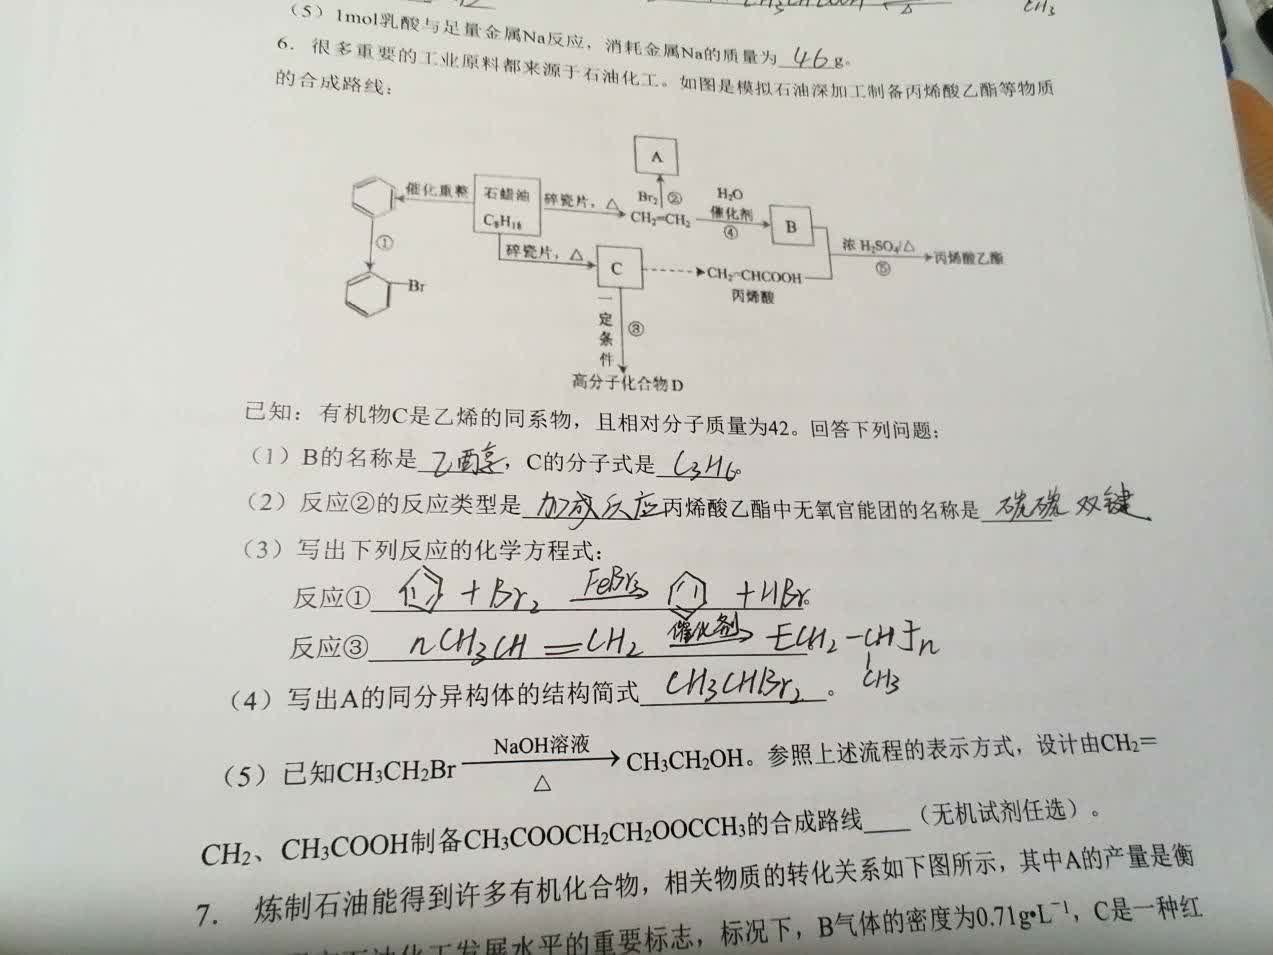 CH₃
（5）1mol乳酸与足量金属Na反应，消耗金属Na的质量为 46 g。
6．很多重要的工业原料都来源于石油化工。如图是模拟石油深加工制备丙烯酸乙酯等物质
的合成路线：
A
催化重整
石蜡油
C₈H₁₈
碎瓷片，△
Br₂ ②
CH₂=CH₂
H₂O
催化剂
④
B
①
碎瓷片，△
C
CH₂=CHCOOH
丙烯酸
浓 H₂SO₄/△
⑤
丙烯酸乙酯
Br
一定条件
③
高分子化合物 D
已知：有机物C是乙烯的同系物，且相对分子质量为42。回答下列问题：
（1）B的名称是 乙醇，C的分子式是 C₃H₆。
（2）反应②的反应类型是 加成反应 丙烯酸乙酯中无氧官能团的名称是 碳碳双键
（3）写出下列反应的化学方程式：
反应① + Br₂ FeBr₃ + HBr。
反应③ nCH₃CH=CH₂ 催化剂 [CH₂-CH]n
CH₃
（4）写出A的同分异构体的结构简式 CH₃CHBr₂ 。
（5）已知CH₃CH₂Br NaOH溶液 △ CH₃CH₂OH。参照上述流程的表示方式，设计由CH₂=
CH₂、CH₃COOH制备CH₃COOCH₂CH₂OOCCH₃的合成路线____（无机试剂任选）。
7． 炼制石油能得到许多有机化合物，相关物质的转化关系如下图所示，其中A的产量是衡
石油化工发展水平的重要标志，标况下，B气体的密度为0.71g•L⁻¹，C是一种红